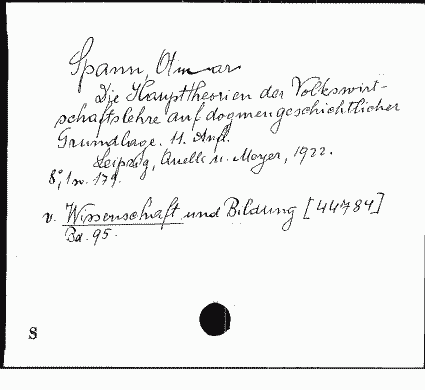 Spann, Otmar
Die Haupttheorien der Volkswirt-
schaftslehre auf dogmengeschichtlicher
Grundlage. 11. Aufl.
Leipzig, Quelle u. Meyer, 1922.
8°, 179.
v. Wissenschaft und Bildung [44784]
Bd. 95.
S